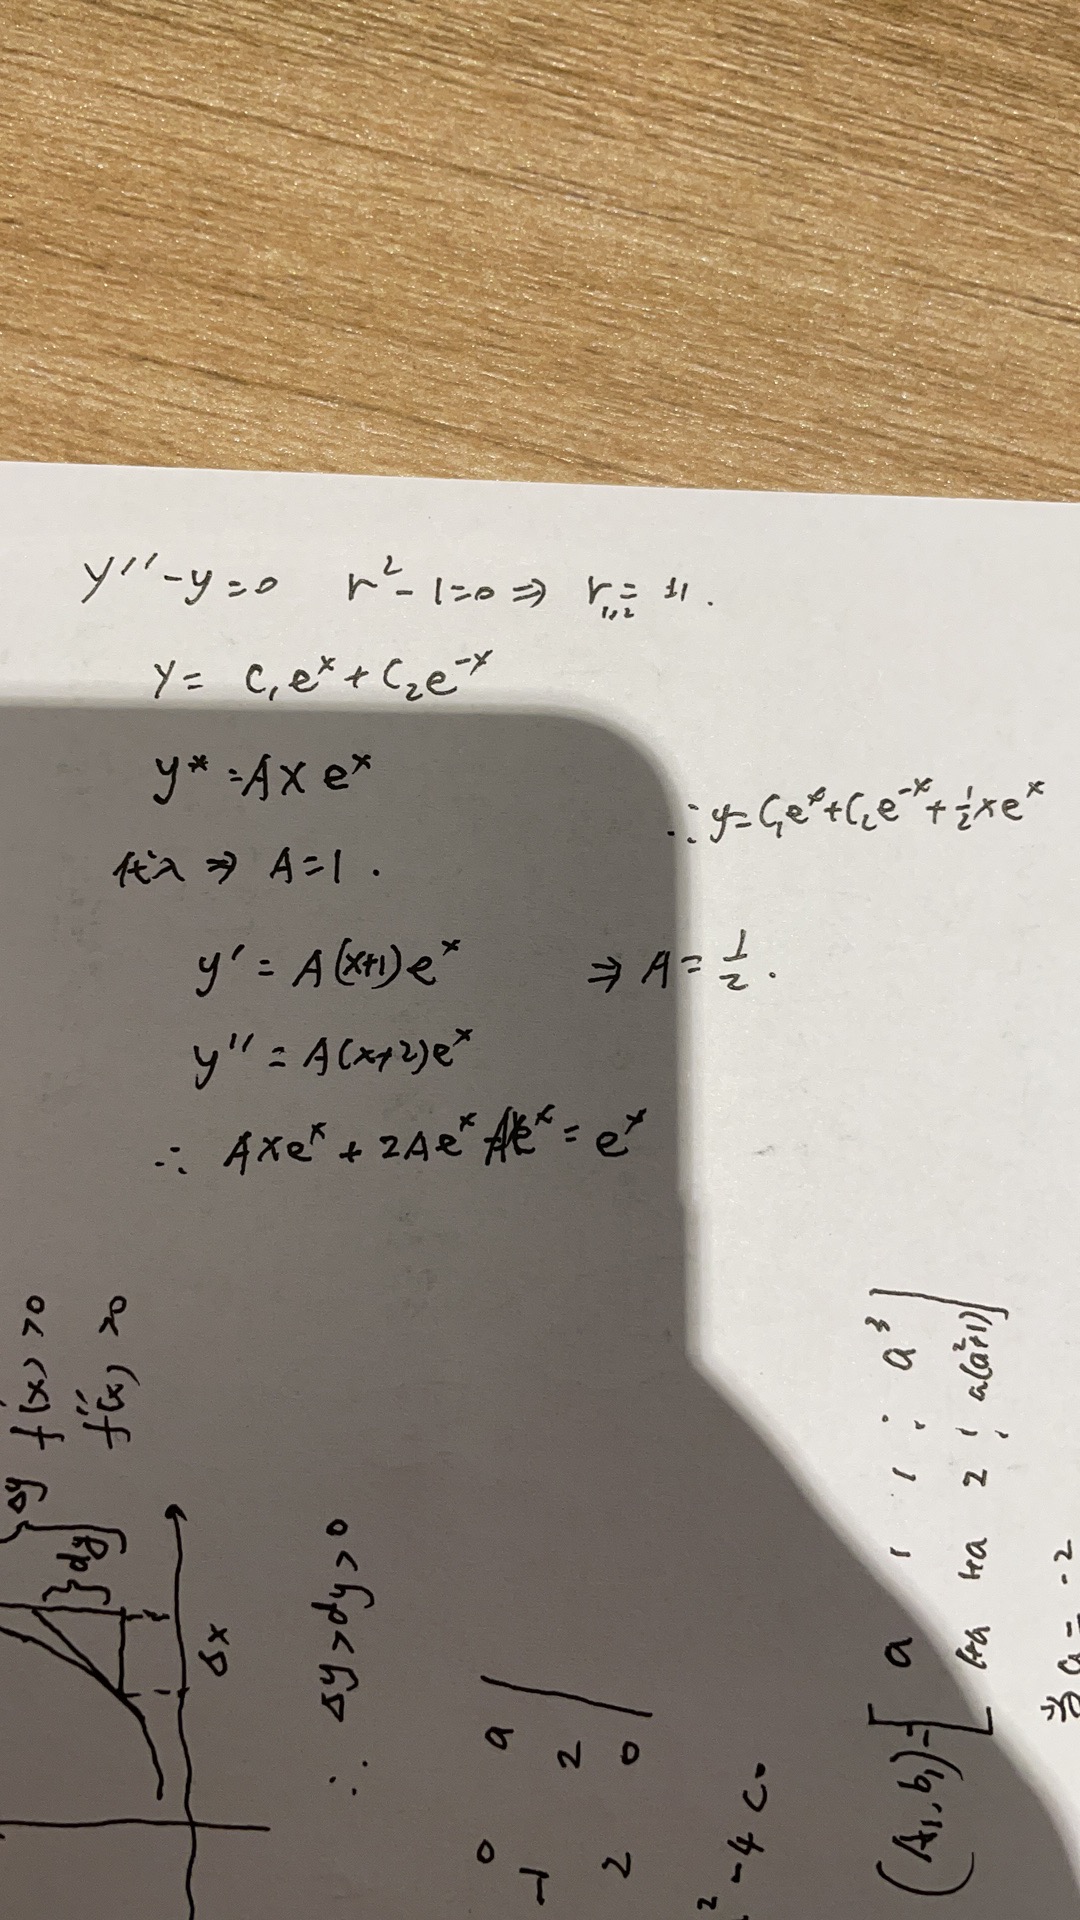 y''-y=0 r²-1=0 ⇒ r₁,₂=±1.
y= C₁eˣ+C₂e⁻ˣ
y*=Axeˣ
∴y=C₁eˣ+C₂e⁻ˣ+½xeˣ
代入⇒ A=1.
y'=A(x+1)eˣ ⇒ A=½.
y''=A(x+2)eˣ
∴ Axeˣ+2Aeˣ-Axeˣ=eˣ
f'(x)>0
f''(x)>0
Δy
dy
Δx
∴ Δy>dy>0
0 a
-1 2
2 0
²-4c.
(A₁,b₁)=[a 1 1 ⋮ a³
1+a 1+a 2 ⋮ a(a²+1)]
当a=-2